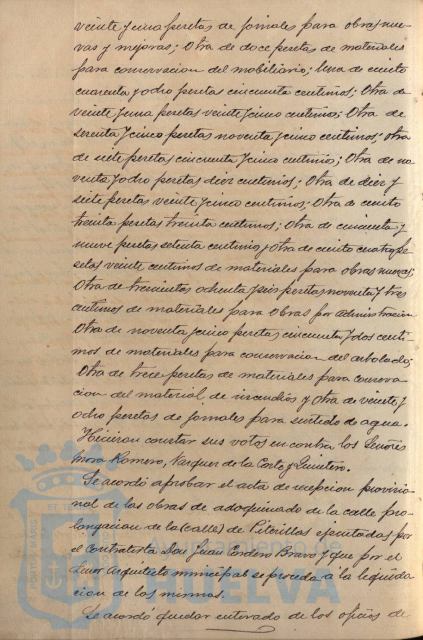 veinte y una pesetas de jornales para obras nue-
vas y mejoras; Otra de doce pesetas de materiales
para conservacion del mobiliario; Una de ciento
cuarenta y ocho pesetas cincuenta centimos; Otra de
veinte y una pesetas veinte y cinco centimos; Otra de
setenta y cinco pesetas noventa y cinco centimos; Otra
de siete pesetas cincuenta y cinco centimos; Otra de no
venta y ocho pesetas diez centimos; Otra de diez y
siete pesetas veinte y cinco centimos; Otra de ciento
treinta pesetas treinta centimos; Otra de cincuenta y
nueve pesetas setenta centimos y otra de ciento cuatro pe
setas veinte centimos de materiales para obras nuevas;
Otra de trescientas ochenta y seis pesetas noventa y tres
centimos de materiales para Obras por Administracion
Otra de noventa y cinco pesetas cincuenta y dos centi-
mos de materiales para conservacion del arbolado;
Otra de trece pesetas de materiales para conserva-
cion del material de incendios y otra de veinte y
ocho pesetas de jornales para surtido de agua.
Hicieron constar sus votos en contra los Señores
Mora Romero, Vazquez de la Corte y Quintero.
Se acordó aprobar el acta de recepcion provisio
nal de las obras de adoquinado de la calle pro-
longacion de la (calle) de Piterillas ejecutadas por
el Contratista Don Juan Cordero Bravo y que por el
Señor Arquitecto municipal se proceda á la liquida
cion de las mismas.
Se acordó quedar enterado de los oficios de
HUELVA